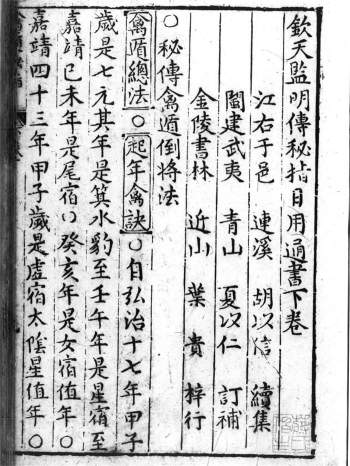 欽天監明傳秘指日用通書下卷
江右于邑 連溪 胡以信 續集
閩建武夷 青山 夏以仁 訂補
金陵書林 近山 葉貴 梓行
○秘傳禽遁倒将法
禽遁總法○起年禽訣○自弘治十七年甲子
歲是七元其年是箕水豹至壬午年是星宿至
嘉靖己未年是尾宿○癸亥年是女宿值年○
嘉靖四十三年甲子歲是虛宿太陰星值年○